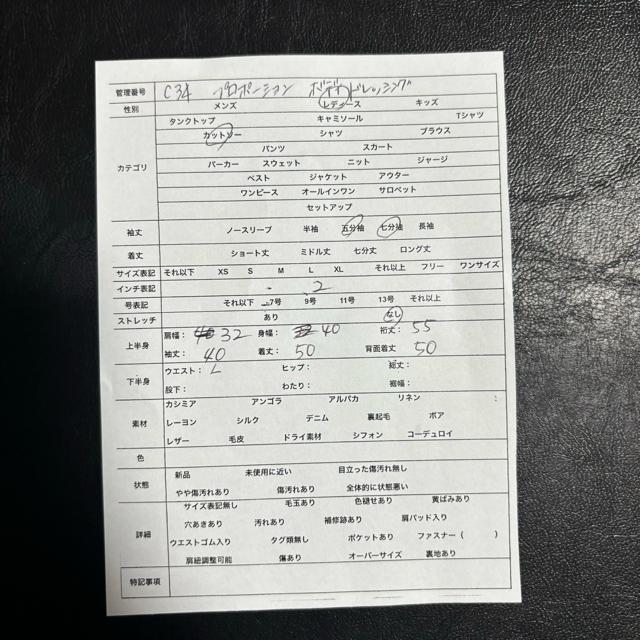 管理番号 C34 プロポーション ボディドレッシング
性別 メンズ レディース キッズ
タンクトップ キャミソール Tシャツ
カットソー シャツ ブラウス
パンツ スカート
カテゴリ パーカー スウェット ニット ジャージ
ベスト ジャケット アウター
ワンピース オールインワン サロペット
セットアップ
袖丈 ノースリーブ 半袖 五分袖 七分袖 長袖
着丈 ショート丈 ミドル丈 七分丈 ロング丈
サイズ表記 それ以下 XS S M L XL それ以上 フリー ワンサイズ
インチ表記 2
号表記 それ以下 7号 9号 11号 13号 それ以上
ストレッチ あり なし
上半身 肩幅: 32 身幅: 40 裄丈: 55
袖丈: 40 着丈: 50 背面着丈 50
下半身 ウエスト: ヒップ: 総丈:
股下: わたり: 裾幅:
カシミア アンゴラ アルパカ リネン :
素材 レーヨン シルク デニム 裏起毛 ボア
レザー 毛皮 ドライ素材 シフォン コーデュロイ
色
状態 新品 未使用に近い 目立った傷汚れ無し
やや傷汚れあり 傷汚れあり 全体的に状態悪い
サイズ表記無し 毛玉あり 色褪せあり 黄ばみあり
詳細 穴あきあり 汚れあり 補修跡あり 肩パッド入り
ウエストゴム入り タグ類無し ポケットあり ファスナー ( )
肩紐調整可能 傷あり オーバーサイズ 裏地あり
特記事項